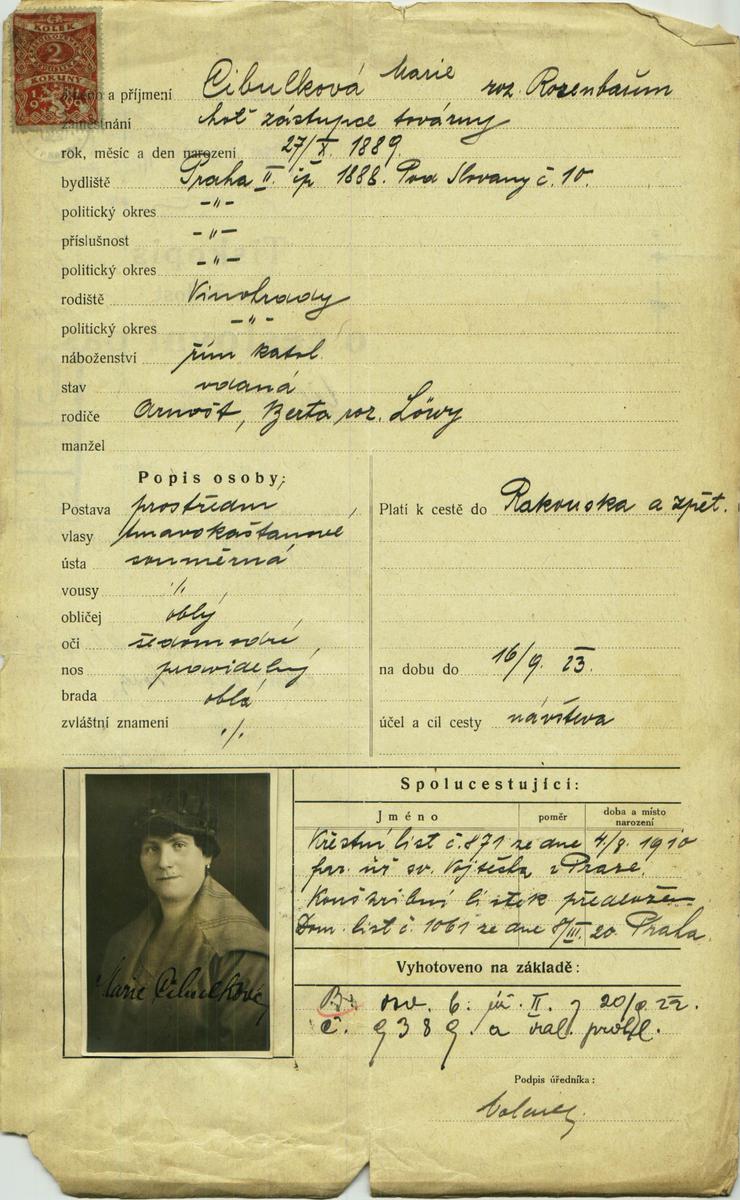 KOLEK
2
KORUNY
a příjmení Cibulková Marie roz. Rozenbaum
zaměstnání choť zástupce továrny
rok, měsíc a den narození 27/X. 1889.
bydliště Praha II. čp. 1888. Pod Slovany č. 10.
politický okres -"-
příslušnost -"-
politický okres -"-
rodiště Vinohrady
politický okres -"-
náboženství řím katol.
stav vdaná
rodiče Arnošt, Berta roz. Löwy
manžel
Popis osoby:
Postava prostřední
vlasy tmavokaštanové
ústa souměrná
vousy ./.
obličej oblý
oči šedomodré
nos pravidelný
brada oblá
zvláštní znamení ./.
Platí k cestě do Rakouska a zpět.
na dobu do 16/9. 23.
účel a cíl cesty návštěva
Marie Cibulková
Spolucestující:
Jméno poměr doba a místo narození
Křestní list č. 871 ze dne 4/8. 1910
far. úř. sv. Vojtěcha v Praze.
lístek
Dom. list č. 1061 ze dne 8/III. 20. Praha.
Vyhotoveno na základě:
II. z 22.
č. 9389. a
Podpis úředníka: